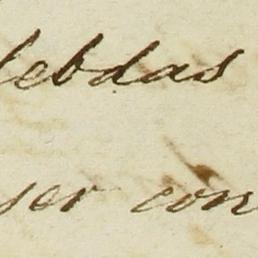 lebdas
ser con